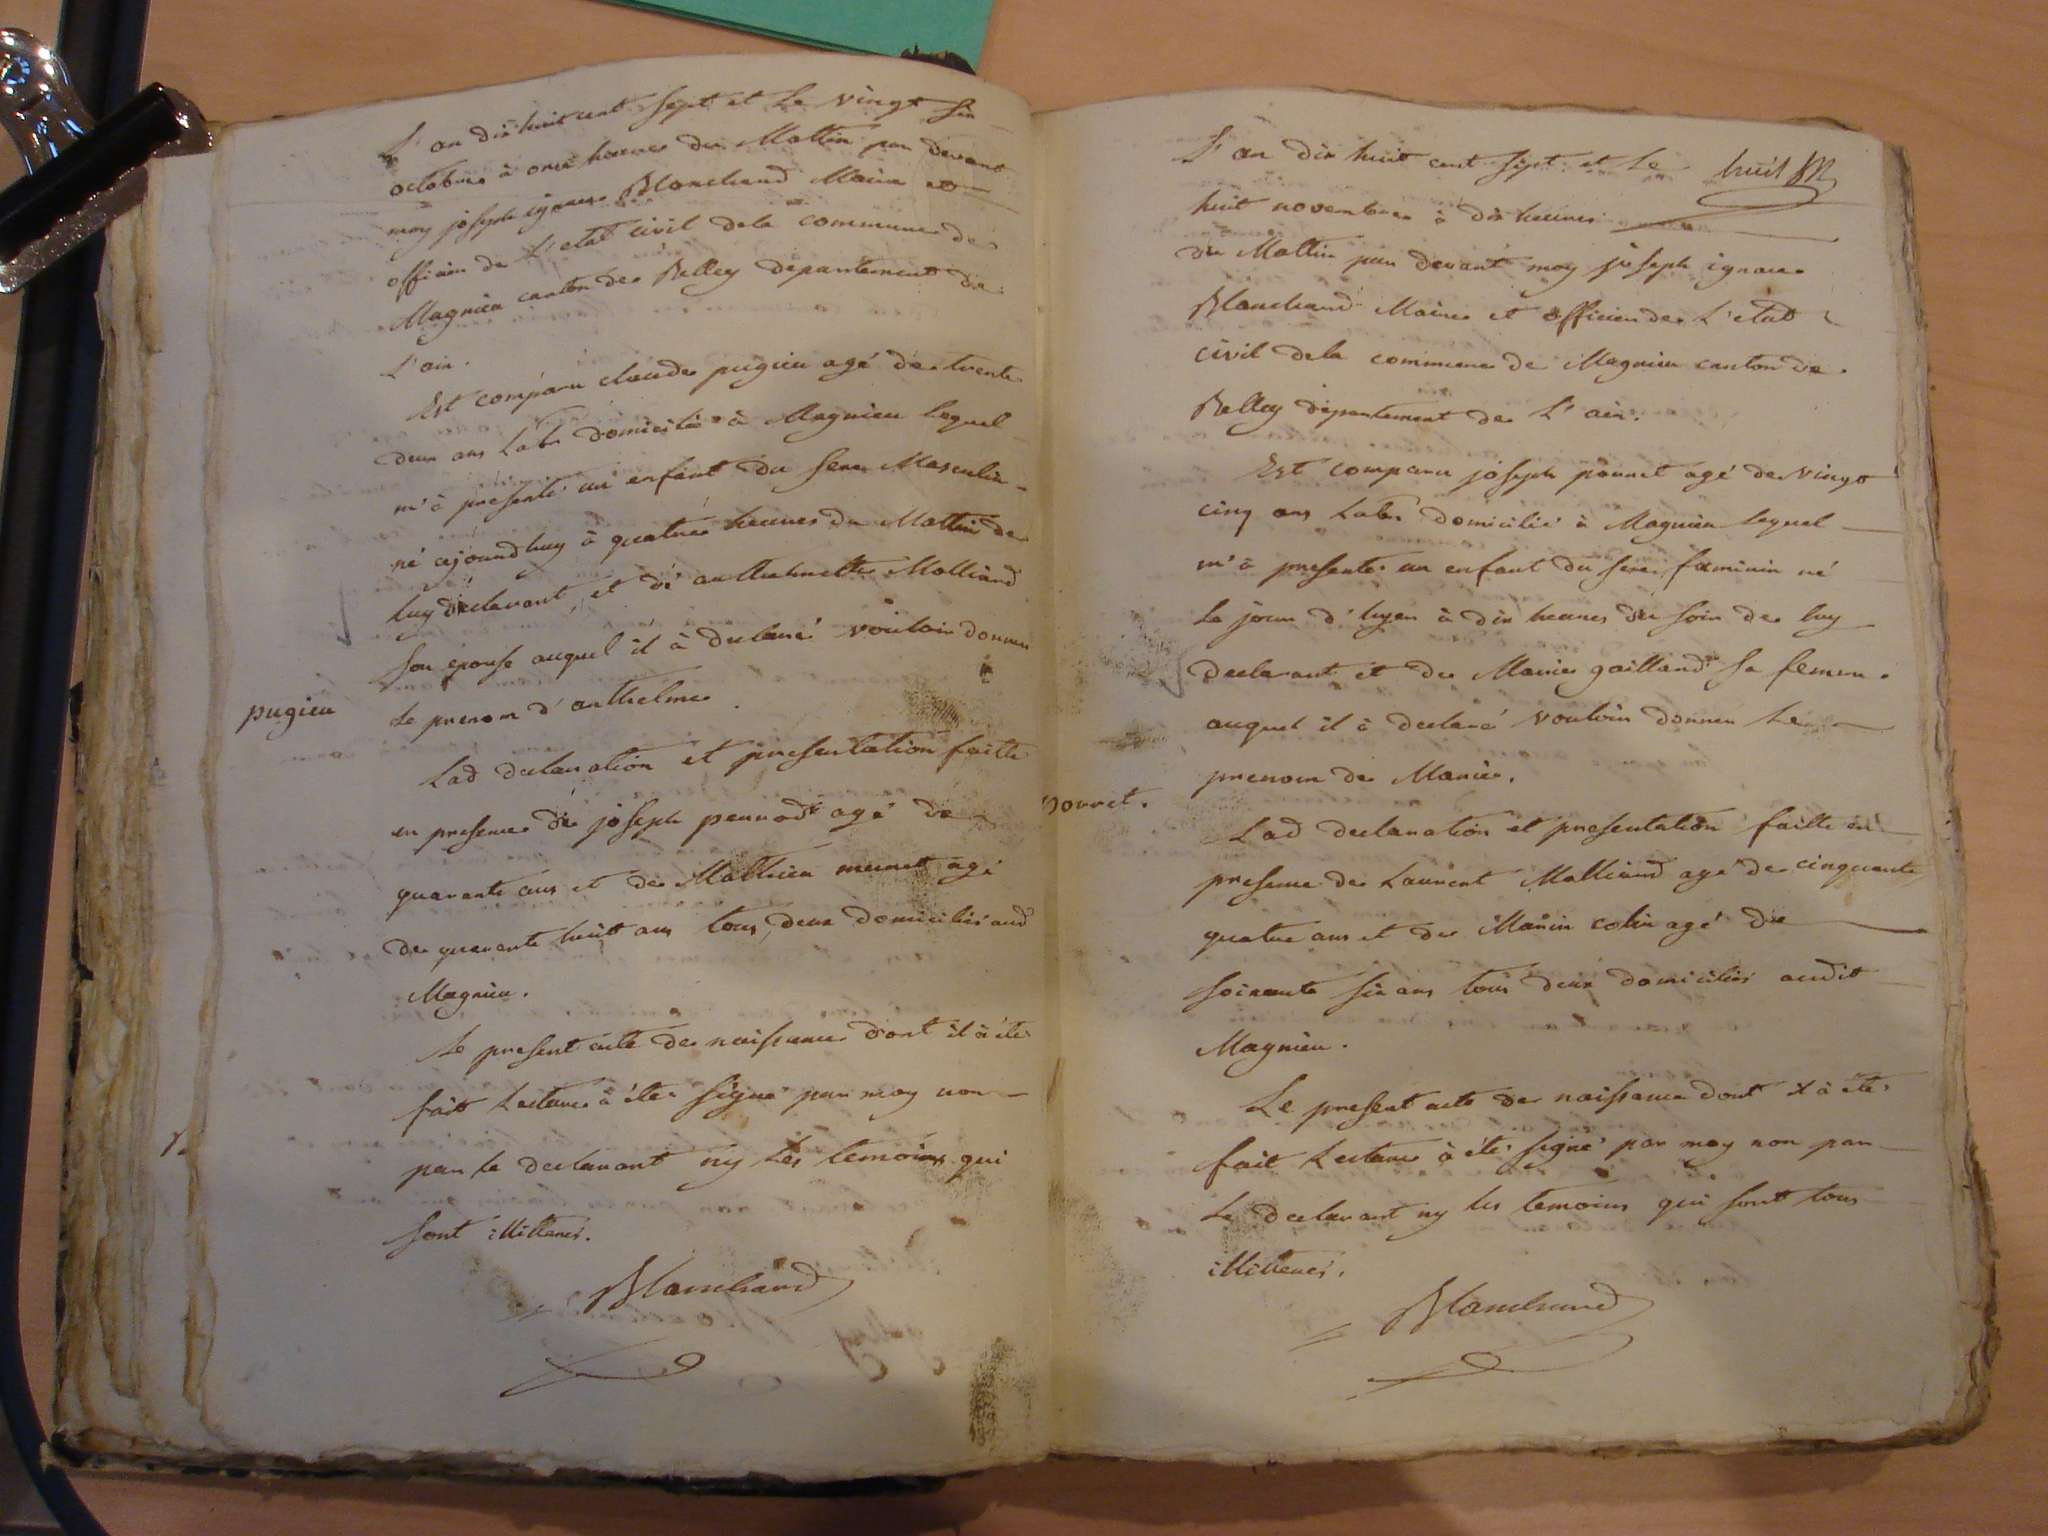 L'an dix huit cent sept et le vingt six
octobre à onze heures du Mattin par devant
moy joseph ignace Blanchard Maire et
officier de L'etat civil de la commune de
Magnieu canton de Belley departement de
L'ain.
Est comparu claude pugieu agé de trente
deux ans Labr domicilié à Magnieu lequel
m'à presenté un enfant du sexe Masculin
né cejourdhuy à quatre heures du Mattin de
luy declarant, et de anthelmette Molliard
son epouse auquel il à declaré vouloir donner
pugieu
le prenom d'anthelme.
Lad declaration et presentation faitte
en presence de joseph perrod agé de
quarante ans et de Mathieu meunet agé
de quarante huit ans tous deux domiciliés aud
Magnieu.
Le present acte de naissance dont il à été
fait Lecture à été signé par moy non
par le declarant ny les temoins qui
sont illiterés.
Blanchard
huit
L'an dix huit cent sept et le
huit novembre à dix heures
du Mattin par devant moy joseph ignace
Blanchard Maire et officier de L'etat
civil de la commune de Magnieu canton de
Belley departement de L'ain.
Est comparu joseph pourret agé de vingt
cinq ans Labr domicilié à Magnieu lequel
m'à presenté un enfant du sexe faminin né
Le jour d'hyer à dix heures du soir de luy
declarant et de Marie gaillard sa femme
auquel il à declaré vouloir donner Le
prenom de Marie.
pourret.
Lad declaration et presentation faitte en
presence de Laurent Molliard agé de cinquante
quatre ans et de Marin colin agé de
soixante six ans tous deux domiciliés audit
Magnieu.
Le present acte de naissance dont il à été
fait Lecture à été signé par moy non par
Le declarant ny les temoins qui sont tous
illiterés.
Blanchard